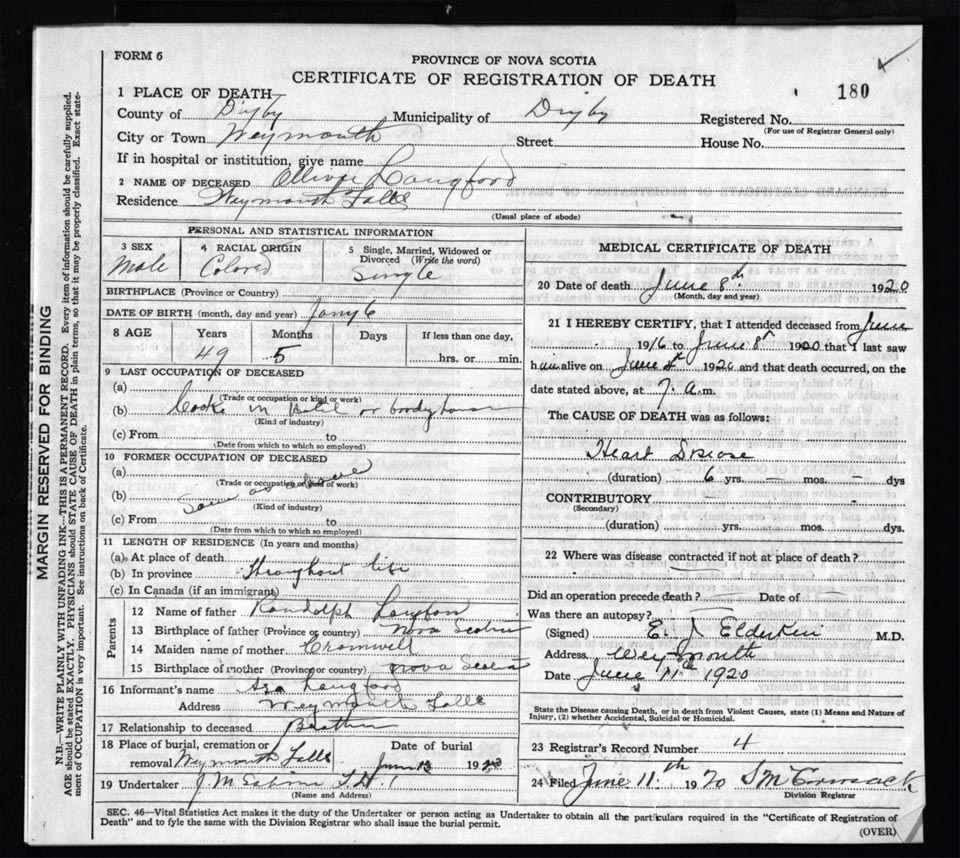 FORM 6
PROVINCE OF NOVA SCOTIA
CERTIFICATE OF REGISTRATION OF DEATH
180
1 PLACE OF DEATH
County of Digby Municipality of Digby Registered No.
(For use of Registrar General only)
City or Town Weymouth Street House No.
If in hospital or institution, give name
2 NAME OF DECEASED Langford
Residence Weymouth Falls
(Usual place of abode)
PERSONAL AND STATISTICAL INFORMATION
3 SEX Male
4 RACIAL ORIGIN Colored
5 Single, Married, Widowed or Divorced (Write the word) Single
BIRTHPLACE (Province or Country)
DATE OF BIRTH (month, day and year) Jany 6
8 AGE Years Months Days If less than one day,
49 5 hrs. or min.
9 LAST OCCUPATION OF DECEASED
(a)
(Trade or occupation or kind of work)
(b) Cook in Hotel or
(Kind of industry)
(c) From to
(Date from which to which so employed)
10 FORMER OCCUPATION OF DECEASED
(a)
(Trade or occupation or kind of work)
(b) Same as above
(Kind of industry)
(c) From to
(Date from which to which so employed)
11 LENGTH OF RESIDENCE (In years and months)
(a) At place of death
(b) In province Throughout life
(c) In Canada (if an immigrant)
Parents
12 Name of father Randolph
13 Birthplace of father (Province or country) Nova Scotia
14 Maiden name of mother Cromwell
15 Birthplace of mother (Province or country) Nova Scotia
16 Informant's name Asa Langford
Address Weymouth Falls
17 Relationship to deceased Brother
18 Place of burial, cremation or Date of burial
removal Weymouth Falls June 13 1920
19 Undertaker J M
(Name and Address)
MEDICAL CERTIFICATE OF DEATH
20 Date of death June 8th 1920
(Month, day and year)
21 I HEREBY CERTIFY, that I attended deceased from June
1916 to June 8th 1920 that I last saw
him alive on June 1920 and that death occurred, on the
date stated above, at 7 a.m.
The CAUSE OF DEATH was as follows:
Heart Disease
(duration) 6 yrs. – mos. – dys
CONTRIBUTORY
(Secondary)
(duration) yrs. mos. dys.
22 Where was disease contracted if not at place of death?
Did an operation precede death? Date of
Was there an autopsy?
(Signed) E. J Elderkin M.D.
Address Weymouth
Date June 11th 1920
State the Disease causing Death, or in death from Violent Causes, state (1) Means and Nature of
Injury, (2) whether Accidental, Suicidal or Homicidal.
23 Registrar's Record Number 4
24 Filed June 11th 1920 S McCormack
Division Registrar
SEC. 46—Vital Statistics Act makes it the duty of the Undertaker or person acting as Undertaker to obtain all the particulars required in the "Certificate of Registration of
Death" and to fyle the same with the Division Registrar who shall issue the burial permit.
(OVER)
MARGIN RESERVED FOR BINDING
N.B.—WRITE PLAINLY WITH UNFADING INK—THIS IS A PERMANENT RECORD. Every item of information should be carefully supplied.
AGE should be stated EXACTLY. PHYSICIANS should STATE CAUSE OF DEATH in plain terms, so that it may be properly classified. Exact state-
ment of OCCUPATION is very important. See instructions on back of Certificate.